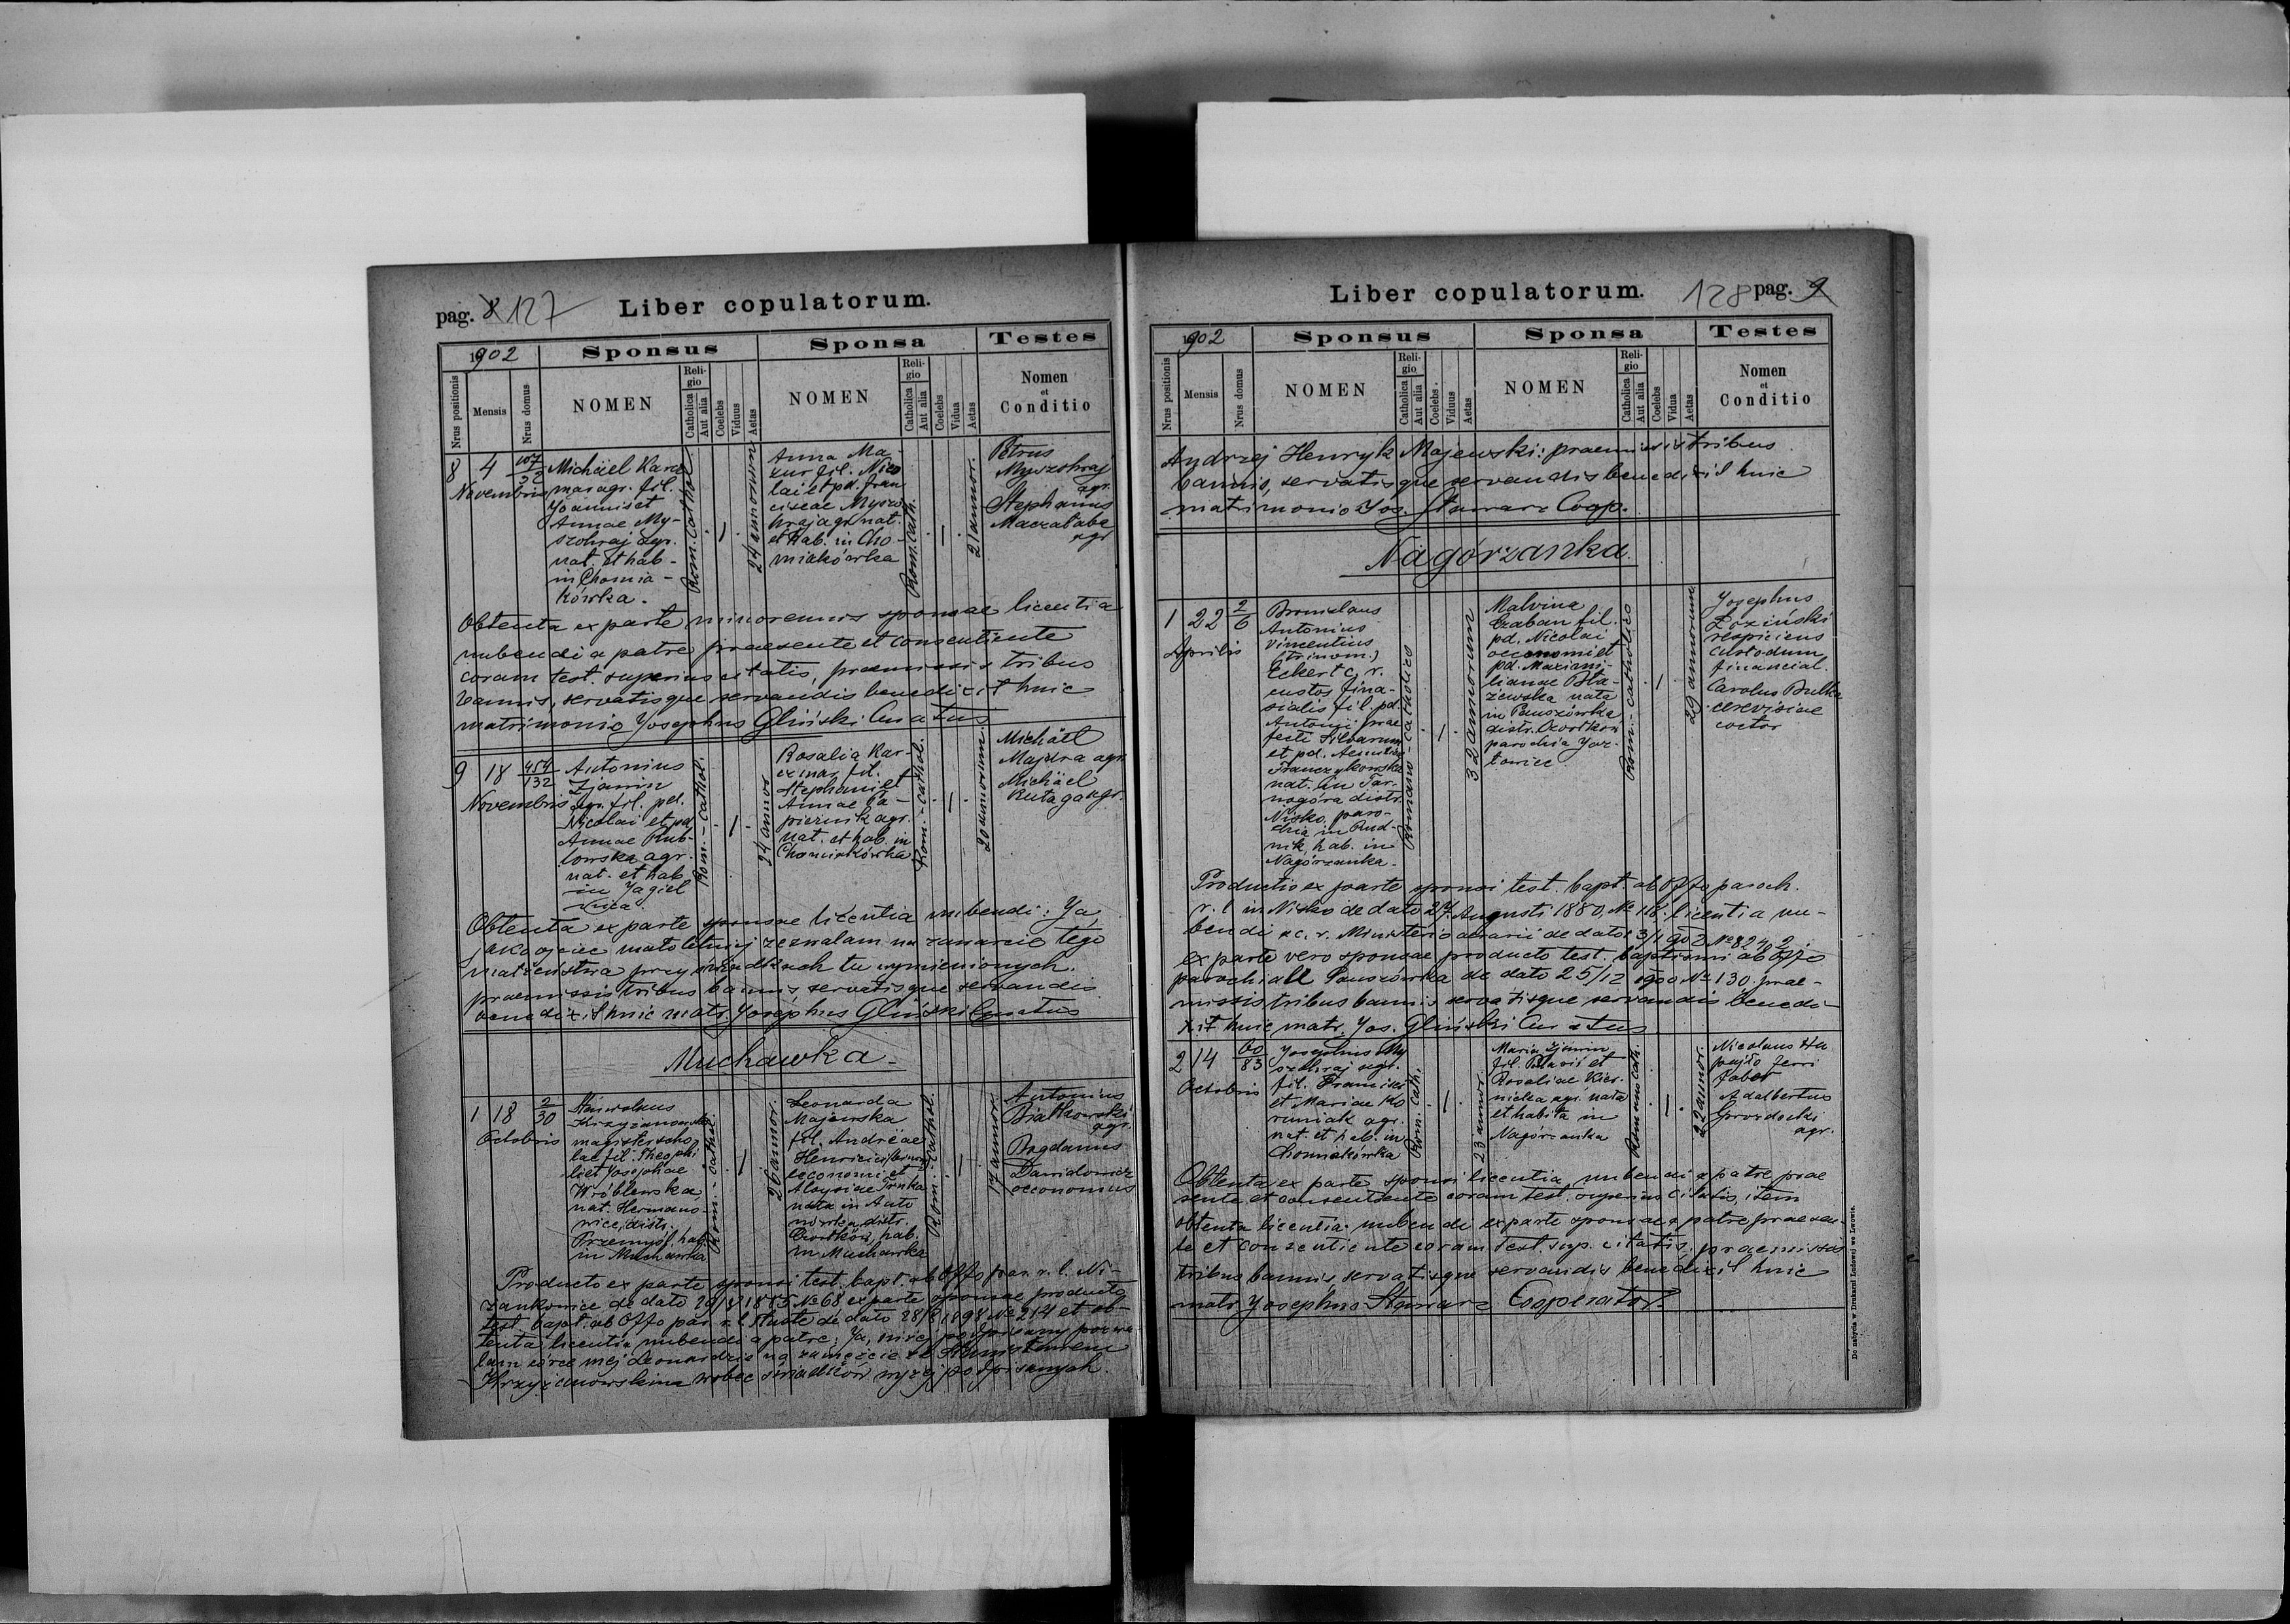 pag. 8 127
Liber copulatorum.
1902
Sponsus
Sponsa
Testes
Nrus positionis
Mensis
Nrus domus
NOMEN
Religio
Catholica
Aut alia
Coelebs
Viduus
Aetas
NOMEN
Religio
Catholica
Aut alia
Coelebs
Vidua
Aetas
Nomen
et
Conditio
8
4
Novembris
107
32
Michäel Karcz
mar agr. fil.
Joannis et
Annae My-
szohraj agr.
nat. et hab-
in Chomia-
kówka.
Rom. Cathol.
24 annorum
Anna Ma-
zur fil. Nico
lai et pd. Fran
ciscae Myszo
hraj agr. nat.
et hab. in Cho-
miakówka
Rom. Cath.
21 annor.
Petrus
Myszohraj
agr.
Stephanus
Maczałaba
agr
Obtenta ex parte minorennis sponsae licentia
nubendi a patre praesente et consentiente
coram test. superius citatis, praemissis tribus
bannis, servatisque servandis benedixit huic
matrimonio Josephus Gliński Curatus
9
18
Novembris
454
132
Antonius
Zjawin
agr. fil. pd.
Nicolai et pd
Annae Kub-
lowska agr.
nat. et hab
in Jagiel
nica.
Rom. - Cathol.
24 annor
Rosalia Kar-
czmar fil.
Stephani et
Annae Pa-
piernik agr.
nat. et hab. in
Chomiakówka
Rom. - Cathol.
20 annorum
Michäel
Majdra agr.
Michäel
Ruta ga agr.
Obtenta ex parte sponsae licentia nubendi: Ja,
jako ojciec małoletniej zezwalam na zawarcie tego
małżeństwa przy świadkach tu wymienionych.
praemissis tribus bannis servatisque servandis
benedixit huic matr. Josephus Gliński Curatus
Muchawka
1
18
Octobris
2
30
Stanislaus
Krzyżanowski
magister scho
lae fil. Theophi
li et Josephae
Wróblewska,
nat. Hermano-
wice, distr.
Przemyśl, hab.
in Muchawka
Rom. - Cathol.
26 annor.
Leonarda
Majewska
fil. Andreae
Henrici (binom)
oeconomi et
Aloysiae Trnka
nata in Anto
nówka distr.
Czortków, hab.
in Muchawka
Rom. - Cathol.
17 annor.
Antonius
Białkowski
agr.
Bogdanus
Dawidowicz
oeconomus
Producto ex parte sponsi test. bapt. ab Offo par. r. l. Ni-
żankowice de dato 29/8 1885 № 68 ex parte sponsae producto
test. bapt. ab Offo par. r. l. Tłuste de dato 28/8 1894 № 214 et ob-
tenta licentia nubendi a patre: Ja, niżej podpisany pozwa
lam córce mej Leonardzie na zamęście ze Stanisławem
Krzyżanowskim wobec świadków wyżej podpisanych.
Liber copulatorum.
128 pag. 9
1902
Sponsus
Sponsa
Testes
Nrus positionis
Mensis
Nrus domus
NOMEN
Religio
Catholica
Aut alia
Coelebs.
Viduus
Aetas
NOMEN
Religio
Catholica
Aut alia
Coelebs
Vidua
Aetas
Nomen
et
Conditio
Andrzej Henryk Majewski: praemissis tribus
bannis, servatisque servandis benedixit huic
matrimonio Jos. Stawarz Coop.
Nagórzanka.
1
22
Aprilis
2
6
Bronislaus
Antonius
Vincentius
(trinom.)
Eckert c. r.
custos fina-
cialis fil. pd.
Antonii prae
fecti silvarum
et pd. Aemiliae
Franczykowska
nat. in Tar-
nogóra distr.
Nisko, paro-
chia in Rud-
nik, hab. in
Nagórzanka.
Romano-catholico
32 annorum
Malvina
Czaban fil.
pd. Nicolai
oeconomi et
pd. Maximi-
lianae Bła-
żewska nata
in Pauszówka
distr. Czortków
parochia Jaz-
łowiec.
Rom. - catholico
29 annorum
Josephus
Łoziński
respiciens
custodum
financial.
Carolus Bulka
cerevisiae
coctor
Producto ex parte sponsi test. bapt. ab Offo paroch.
r. l. in Nisko de dato 27. Augusti 1880, № 118. licentia nu-
bendi a c. r. Ministerio aerarii de dato 3/1 902 № 8242.
ex parte vero sponsae producto test. baptismi ab Offo
parochiali Pauszówka de dato 25/12 1900 № 130. prae-
missis tribus bannis servatisque servandis benedi-
xit huic matr. Jos. Gliński Curatus
2
14
Octobris
60
83
Josephus My
szohraj agr.
fil. Francisci
et Mariae Ko
reniak agr.
nat. et hab. in
Chomiakówka
Rom. Cath.
23 annor.
Maria Zjawin
fil. Pauli et
Rosaliae Kier-
nicka agr. nata
et habita in
Nagórzanka
Romano cath.
22 annor.
Nicolaus Ha
pajło ferri
faber
Adalbertus
Gwozdecki
agr.
Obtenta ex parte sponsi licentia nubendi a patre prae
sente et consentiente coram test. superius citatis, item
obtenta licentia nubendi ex parte sponsae a patre praesen-
te et consentiente coram test. sup. citatis, praemissis
tribus bannis, servatisque servandis benedixit huic
matr Josephus Stawarz Cooperator.
Do nabycia w Drukarni Ludowej we Lwowie.